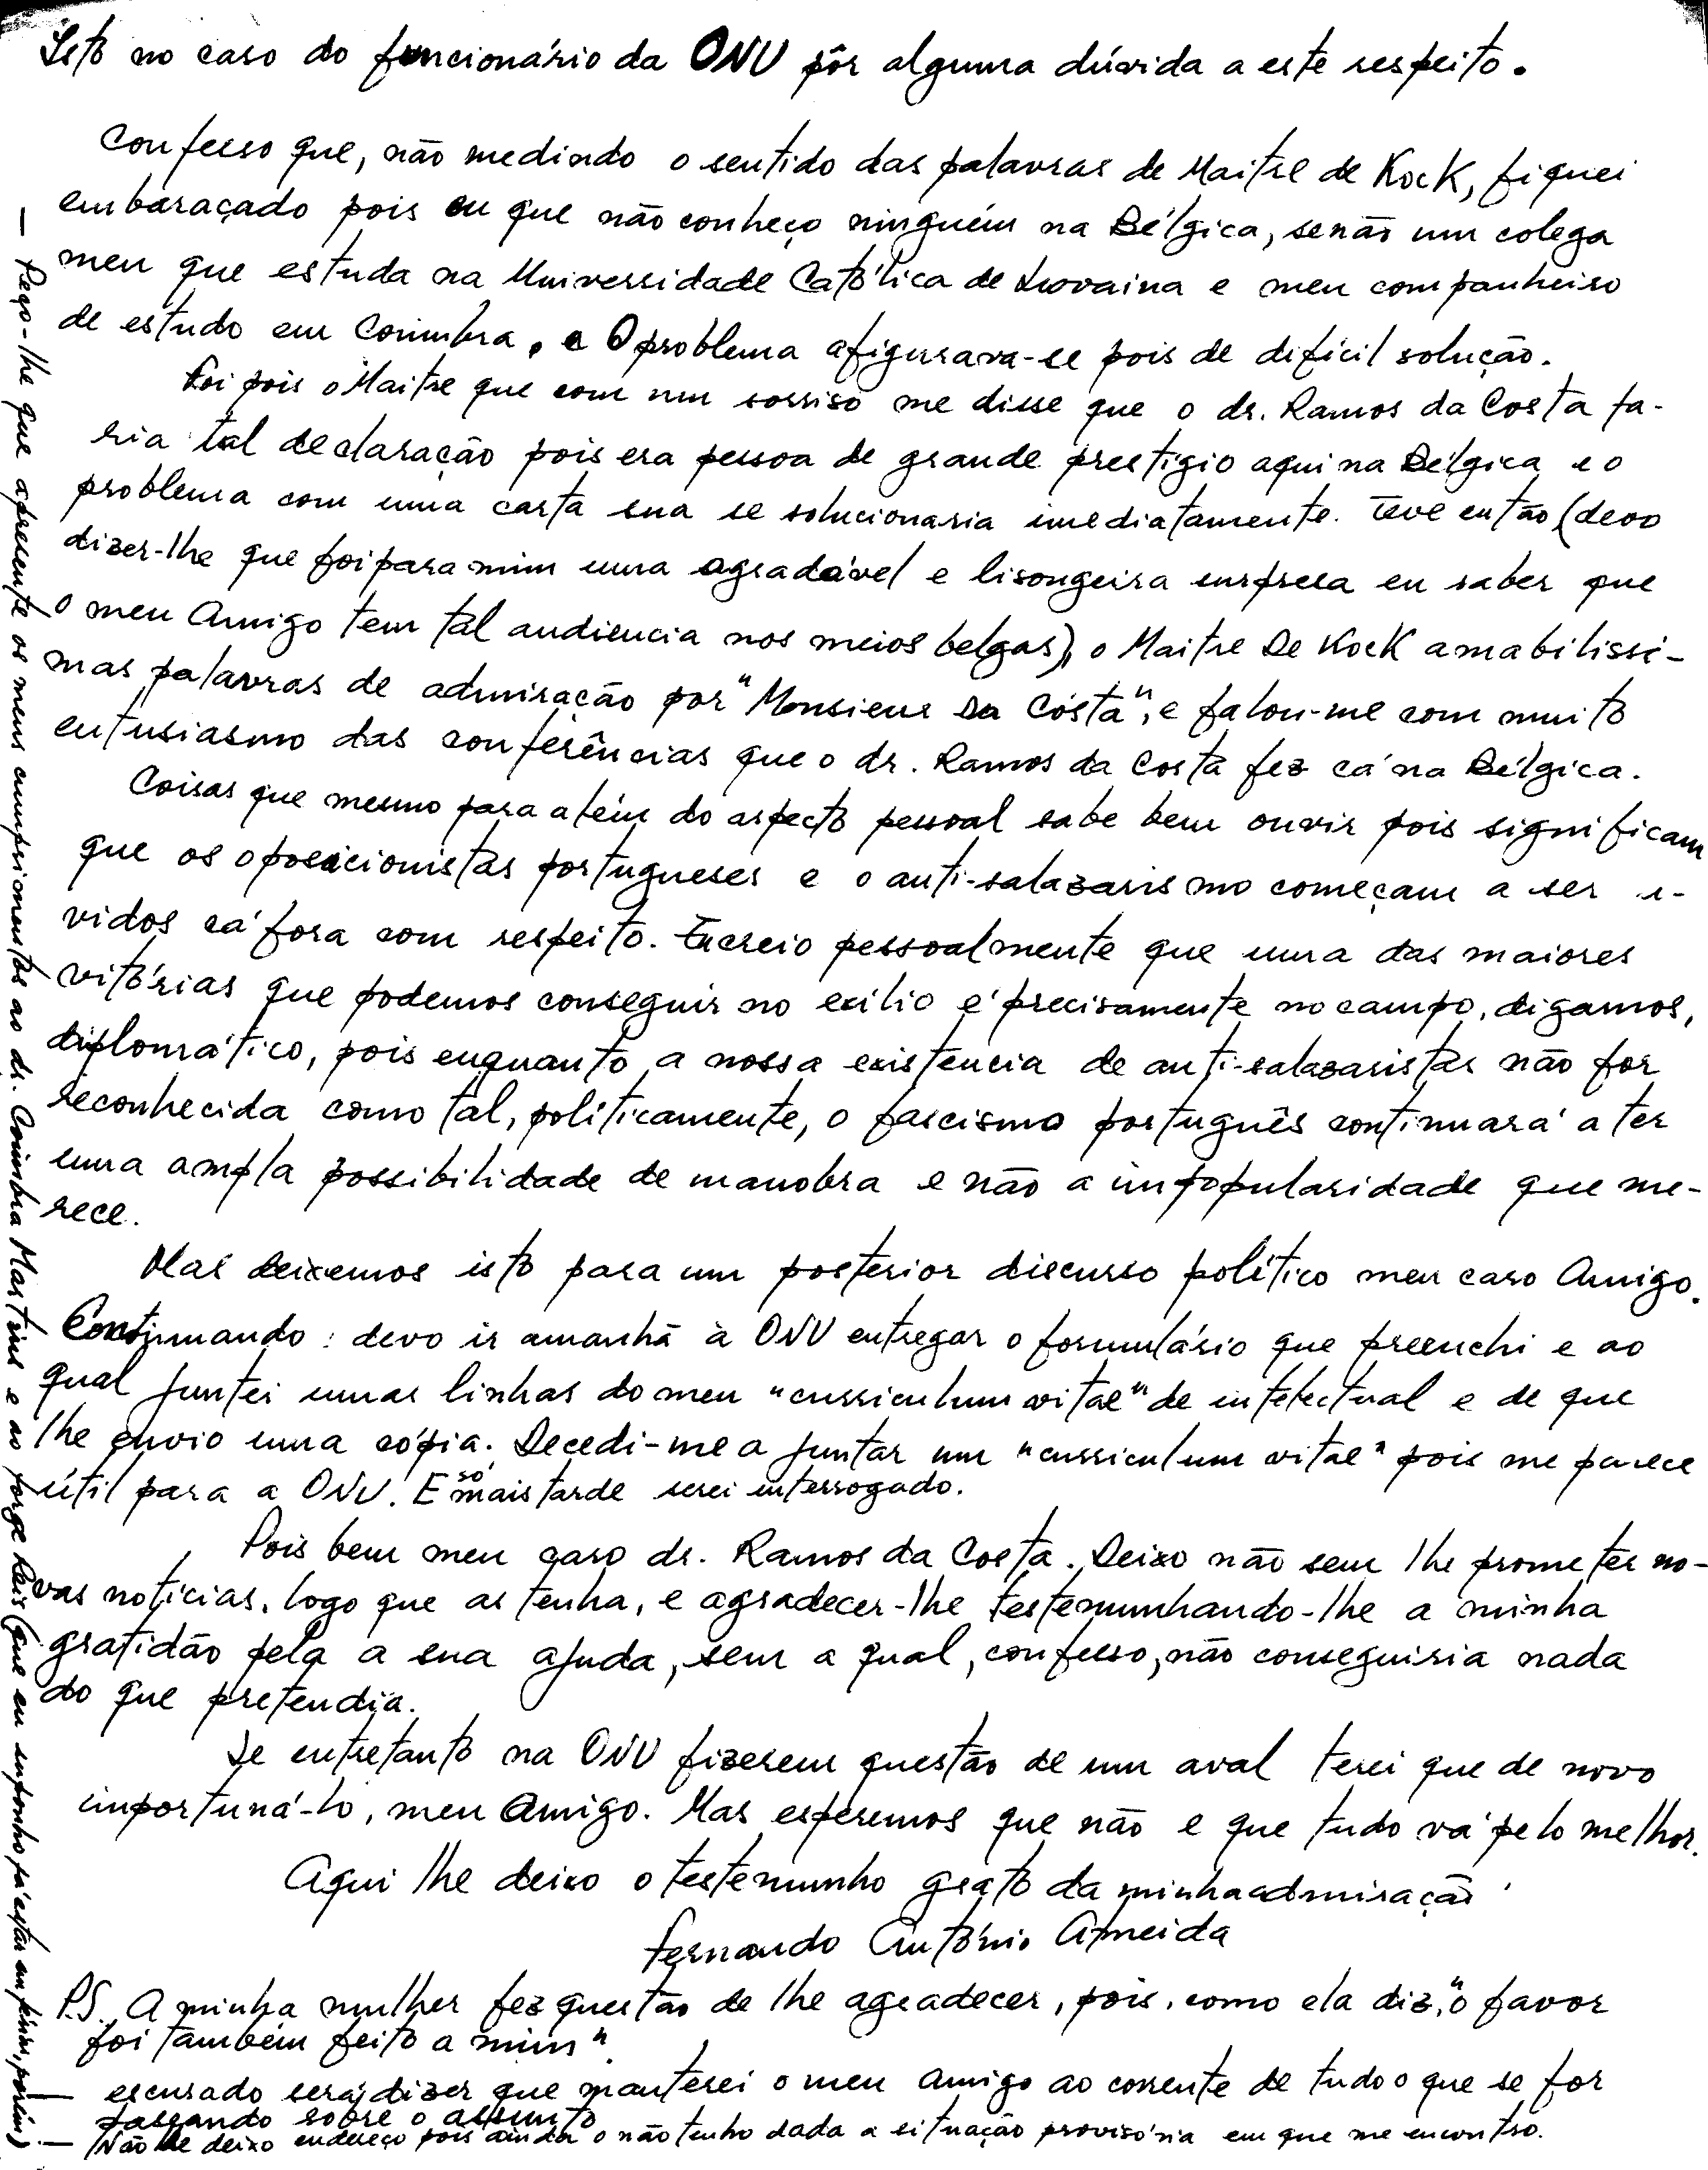 Isto no caso do funcionário da ONU pôr alguma dúvida a este respeito.
Confesso que, não medindo o sentido das palavras de Maitre de Kock, fiquei
embaraçado pois eu que não conheço ninguém na Bélgica, senão um colega
meu que estuda na Universidade Católica de Lovaina e meu companheiro
de estudo em Coimbra. O problema afigurava-se pois de difícil solução.
Foi pois o Maitre que com um sorriso me disse que o dr. Ramos da Costa fa-
ria tal declaração pois era pessoa de grande prestígio aqui na Bélgica e o
problema com uma carta sua se solucionaria imediatamente. Teve então (devo
dizer-lhe que foi para mim uma agradável e lisongeira surpresa eu saber que
o meu Amigo tem tal audiencia nos meios belgas), o Maitre De Kock amabilissi-
mas palavras de admiração por "Monsieur Da Costa", e falou-me com muito
entusiasmo das conferências que o dr. Ramos da Costa fez cá na Bélgica.
Coisas que mesmo para além do aspecto pessoal sabe bem ouvir pois significam
que os oposicionistas portugueses e o anti-salazarismo começam a ser
vidos cá fora com respeito. Eu creio pessoalmente que uma das maiores
vitórias que podemos conseguir no exílio é precisamente no campo, digamos,
diplomático, pois enquanto a nossa existencia de anti-salazaristas não for
reconhecida como tal, politicamente, o fascismo português continuará a ter
uma ampla possibilidade de manobra e não a impopularidade que me-
rece.
Mas deixemos isto para um posterior discurso político meu caro Amigo.
Continuando: devo ir amanhã à ONU entregar o formulário que preenchi e ao
qual juntei umas linhas do meu "curriculum vitae" de intelectual e de que
lhe envio uma cópia. Decedi-me a juntar um "curriculum vitae" pois me parece
útil para a ONU. E só mais tarde serei interrogado.
Pois bem meu caro dr. Ramos da Costa. Deixo não sem lhe prometer no-
vas notícias, logo que as tenha, e agradecer-lhe testemunhando-lhe a minha
gratidão pela a sua ajuda, sem a qual, confesso, não conseguiria nada
do que pretendia.
Se entretanto na ONU fizerem questão de um aval terei que de novo
importuná-lo, meu Amigo. Mas esperemos que não e que tudo vá pelo melhor.
Aqui lhe deixo o testemunho grato da minha admiração
Fernando António Almeida
P.S. A minha mulher fez questão de lhe agradecer, pois, como ela diz, "o favor
foi também feito a mim".
— escusado será dizer que manterei o meu amigo ao corrente de tudo o que se for
passando sobre o assunto
— Não lhe deixo endereço pois ainda o não tenho dada a situação provisória em que me encontro.
— Peço-lhe que apresente os meus cumprimentos ao dr. Coimbra Martins e ao Jorge Reis (que eu suponho já estar em férias, porém)!